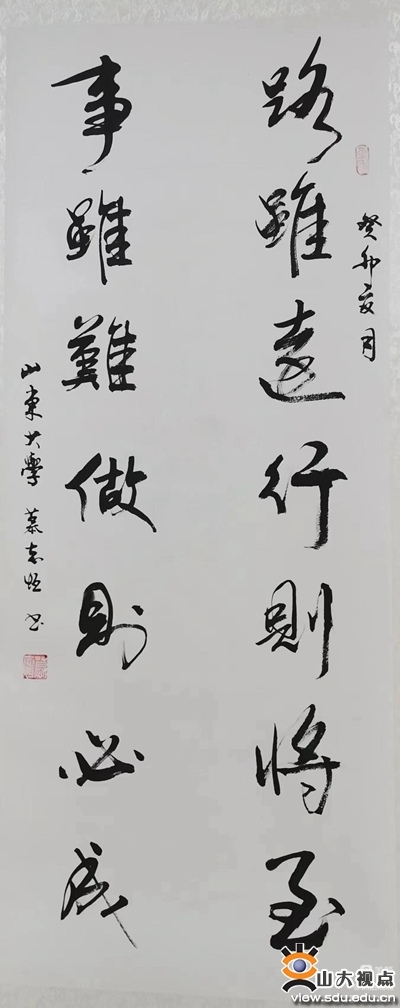 癸卯亥月
路雖遠行則將至
事雖難做則必成
山東大學 慕志恒 书
山大视点
view.sdu.edu.cn